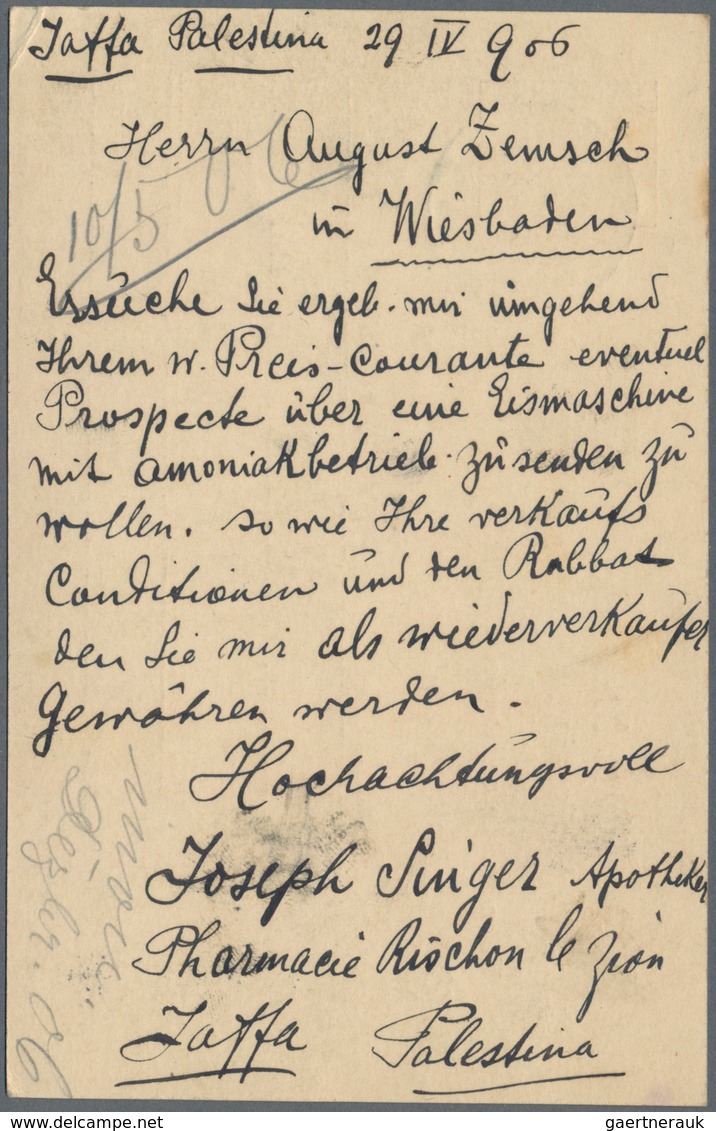 Jaffa Palestina 29 IV 906
Herrn August Zemsch
in Wiesbaden
10/5 06
Ersuche Sie ergeb. mir umgehend
Ihrem w. Preis-Courante eventuel
Prospecte über eine Eismaschine
mit amoniakbetrieb zusenden zu
wollen. so wie Ihre verkaufs
Conditionen und den Rabbat
den Sie mir als wiederverkaufer
Gewähren werden.
Hochachtungsvoll
Joseph Singer Apotheker
Pharmacie Rischon le Zion
Jaffa Palestina
06
delcampe.net
gaertnerauk